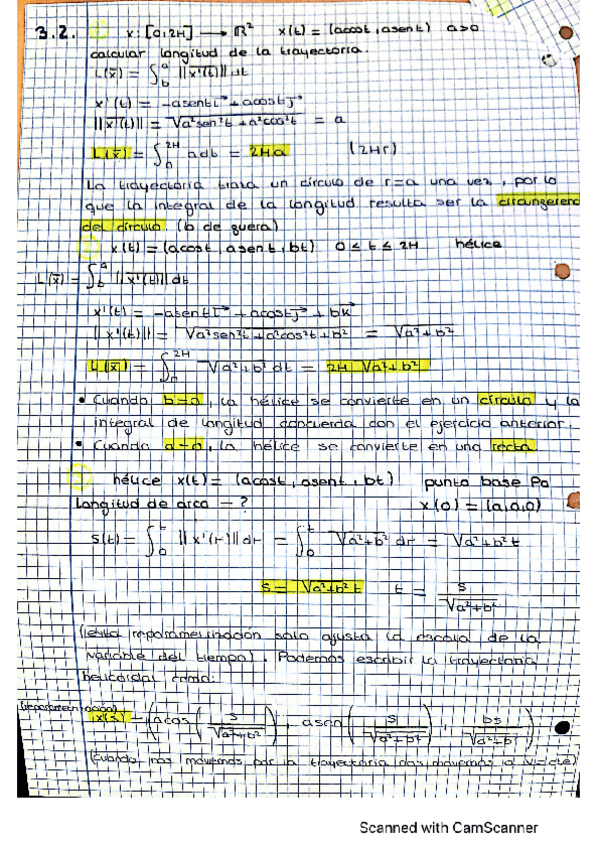 3.2. 1 x: [0,2π] → ℝ² x(t) = (acost, asent) a>0
calcular longitud de la trayectoria.
L(x̄) = ∫ₐᵇ ||x'(t)|| dt
x'(t) = -asent i + acost j
||x'(t)|| = √a²sen²t + a²cos²t = a
L(x̄) = ∫₀^2π a dt = 2πa (2πr)
La trayectoria traza un círculo de r=a una vez, por lo
que la integral de la longitud resulta ser la circunferencia
del círculo (b de fuera)
2 x(t) = (acost, asent, bt) 0 ≤ t ≤ 2π hélice
L(x̄) = ∫ₐᵇ ||x'(t)|| dt
x'(t) = -asent i + acost j + bk
||x'(t)|| = √a²sen²t + a²cos²t + b² = √a² + b²
L(x̄) = ∫₀^2π √a² + b² dt = 2π √a² + b²
• Cuando b=0, la hélice se convierte en un círculo y la
integral de longitud concuerda con el ejercicio anterior.
• Cuando a=0, la hélice se convierte en una recta
3 hélice x(t) = (acost, asent, bt) punto base Po
Longitud de arco - ? x(0) = (a,0,0)
s(t) = ∫₀ᵗ ||x'(r)|| dr = ∫₀ᵗ √a² + b² dr = √a² + b² t
s = √a²+b² t t = s / √a² + b²
(esta reparametrización solo ajusta la escala de la
variable del tiempo). Podemos escribir la trayectoria
helicoidal como:
(reparametrización)
x(s) = (acos(s / √a²+b²), asen(s / √a²+b²), bs / √a²+b²)
(Cuando nos movemos por la trayectoria nos movemos a v=cte)
Scanned with CamScanner